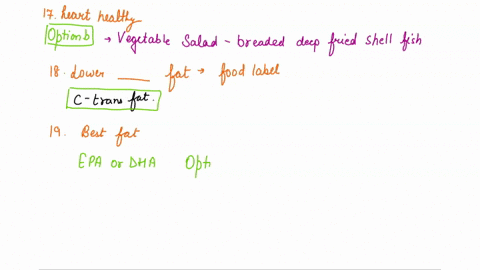 17. heart healthy
Option b → Vegetable Salad - breaded deep fried shell fish
18. Lower ____ fat → food label
C - trans fat.
19. Best fat
EPA or DHA Opti